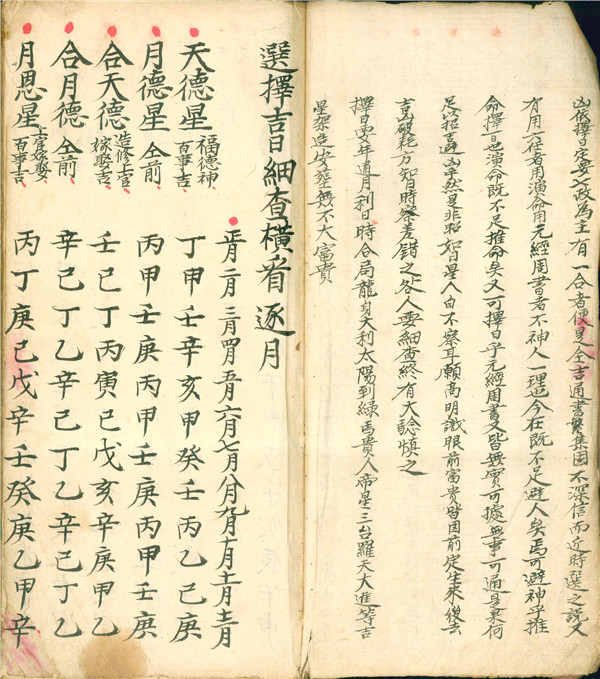 凶俄擇日定要以政為主有一合者便是全吉通書繁集固不深信而近時選之說又
有用一在者用演命用元經周書者不神人一理也今在既不足避人矣焉可避神乎推
命擇日也演命既不足推命矣又可擇日乎元經周書又皆無實可據無事可通具果何
足以招吉避凶乎然是非昭如日星人自不察耳願高明識眼前富貴皆因前定生來後去
吉凶破耗方知日時發差錯之咎人要細查終有大驗慎之
擇日要年通月利日時合局龍身大利太陽到線馬貴人帝星三台羅天大進等吉
星架造安葬無不大富貴
選擇吉日細查橫看逐月
正月二月三月四月五月六月七月八月九月十月十一月十二月
天德星 福德神百事吉 丁申壬辛亥甲癸壬丙乙己庚
月德星 仝前 丙甲壬庚丙甲壬庚丙甲壬庚
合天德 造修上官嫁娶吉 壬巳丁丙寅己戊亥辛庚甲乙
合月德 仝前 辛己丁乙辛己丁乙辛己丁乙
月恩星 上官嫁娶百事吉 丙丁庚己戊辛壬癸庚乙甲辛